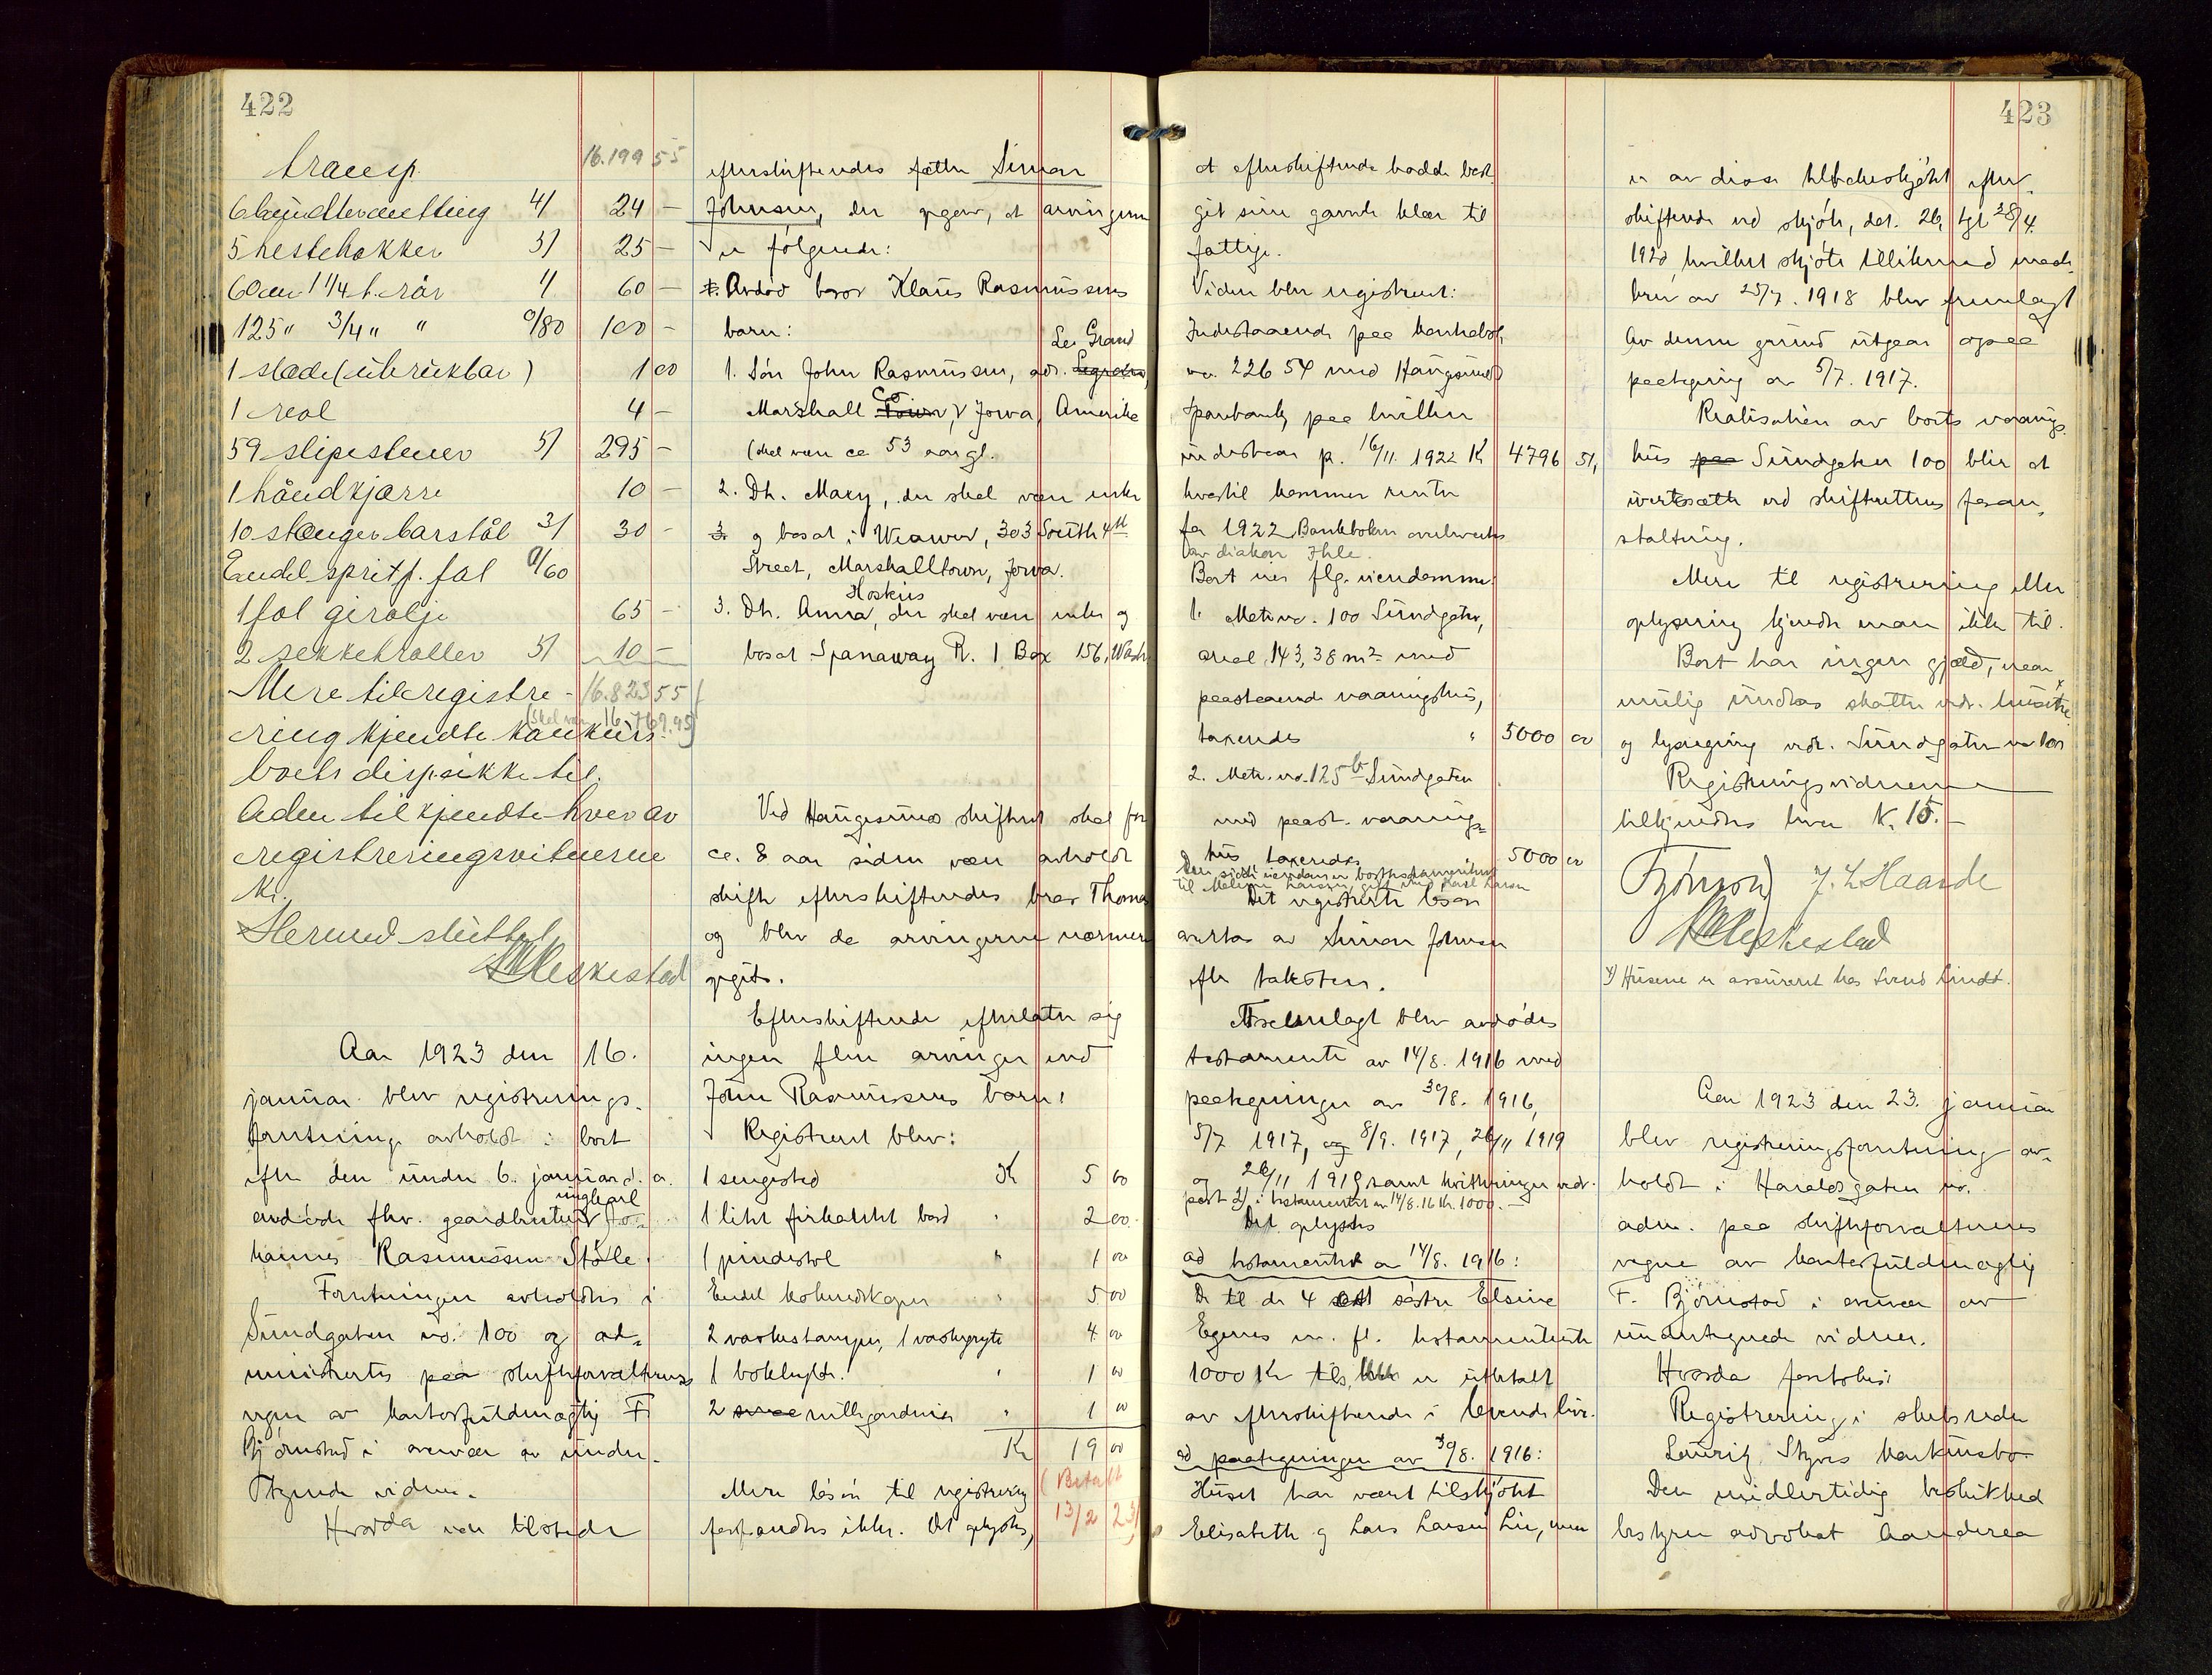 422
transp. 16.199 55
6 bundter netting 4/ 24 -
5 hestehakker 5/ 25 -
60 cm 1 1/4 t. rör 1/ 60 -
125 " 3/4 " " 0/80 100 -
1 slæde (ubrukbar) 1 00
1 reol 4 -
59 slipestener 5/ 295 -
1 håndkjærre 10 -
10 stænger barstål 3/ 30 -
Endel spritf. fat 0/60
1 fat girolje 65 -
2 sekketraller 5/ 10 -
Mere til registre- 16.823 55
(skal være 16.767.95)
ring kjendte konkurs-
boets disp. ikke til.
Aden tilkjendtes hver av
registreringsvitnerne
Kr.
Hermed sluttet
Meskestad
Aar 1923 den 16.
januar blev registrerings-
forretning avholdt i boet
efter den under 6. januar d. a.
avdöde fhv. gaardbruker ungkarl Jo-
hannes Rasmussen Stöle.
Forretningen avholdtes i
Sundgaten no. 100 og ad-
ministrertes paa skifteforvalterens
vegne av kontorfuldmægtig F.
Björnstad i overvær av under-
tegnede vidner.
Hvorda var tilstede
efterskiftendes fætter Simon
Johnsen, der opgav, at arvingerne
er følgende:
Avdöd bror Klaus Rasmussens
barn:
1. Sön John Rasmussen, adr. Le Grand
Marshall Co, Jowa, Amerika
(skal være ca 53 aar gl.
2. Dt. Mary, der skal være enke
og bosat i Weaver, 303 South 4th
Street, Marshalltown, Jowa.
3. Dt. Anna Hoskins, der skal være enke og
bosat Spanaway R. 1 Box 156, Wash.
Ved Haugesunds skifteret skal for
ca. 8 aar siden være avholdt
skifte efter skiftendes bror Thomas
og blev da arvingerne nærmere
opgit.
Efterskiftende efterlater sig
ingen flere arvinger end
John Rasmussens barn.
Registrert blev:
1 sengested K 5 00
1 litet firkantet bord " 2 00
1 pindestol " 1 00
Endel kokeredskaper " 5 00
2 vaskestamper, 1 vaskegryte 4 00
1 boklylde. " 1 00
2 rullegardiner " 1 00
Kr 19 00
Mere lösöre til registrering (Betalt
forefandtes ikke. Det oplystes, 13/2 23)
at efterskiftende hadde bort-
git sine gamle klær til
fattige.
Videre blev registrert:
Indestaaende paa bankbok
no. 22654 med Haugesunds
Sparebank, paa hvilken
indestaar p. 16/11. 1922 K 4796 51,
hvortil kommer renter
for 1922. Bankboken overleveredes
av diakon Ihle.
Boet eier flg. eiendommer:
1. Matr. no. 100 Sundgaten,
areal 143,38 m² med
paastaaende vaaningshus,
takseredes " 5000 00
2. Matr. no. 125 b Sundgaten
med paast. vaanings-
hus takseredes 5000 00
Den sidste eiendom er borttestamenteret
til Malene Larsen, gift med Karl Larsen
Det registrerte lösöre
overtas av Simon Johnsen
efter taksten.
Fremlagt blev avdödes
testamente av 14/8. 1916 med
paategninger av 30/8. 1916,
5/7 1917, 8/9. 1917, 26/11 1919
og 26/11 1919 samt kvitteringer vedr.
post 2) i testamentet av 14/8. 16 Kr. 1000. -
Det oplystes
ad testamentet av 14/8. 1916:
De til de 4 söstre Elsine
Egenes m. fl. testamenterte
1000 Kr tils. er utbetalt
av efterskiftende i levende live.
ad paategningen av 30/8. 1916:
Huset har vært tilskjötet
Elisabeth og Lars Larsen Lie, men
423
er av disse tilbakeskjötet efter-
skiftende ved skjöte, dat. 26, tgl 28/4.
1920, hvilket skjöte tillikemed mæk-
brev av 25/7. 1918 blev fremlagt
Av denne grund utgaar ogsaa
paategning av 5/7. 1917.
Realisation av boets vaanings-
hus Sundgaten 100 blir at
iverksætte ved skifterettens foran-
staltning.
Mere til registrering eller
oplysning kjendte man ikke til.
Boet har ingen gjæld, uten
mulig undtas skatter vedr. husene x)
og lysregning vedr. Sundgaten no 100
Registreringsvidnerne
tilkjendtes hver K. 15. -
Bjørnstad J. L. Haarde
Meskestad
x) Husene er assurert hos Svend Lindt.
Aar 1923 den 23. januar
blev registreringsforretning av-
holdt i Haraldsgaten no.
adm. paa skifteforvalterens
vegne av kontorfuldmægtig
F. Björnstad i overvær av
undertegnede vidner.
Hvorda foretokes:
Registrering i skotsmaker
Lauritz Styves konkursbo.
Den midlertidig beskikkede
bestyrer advokat Aanderaa